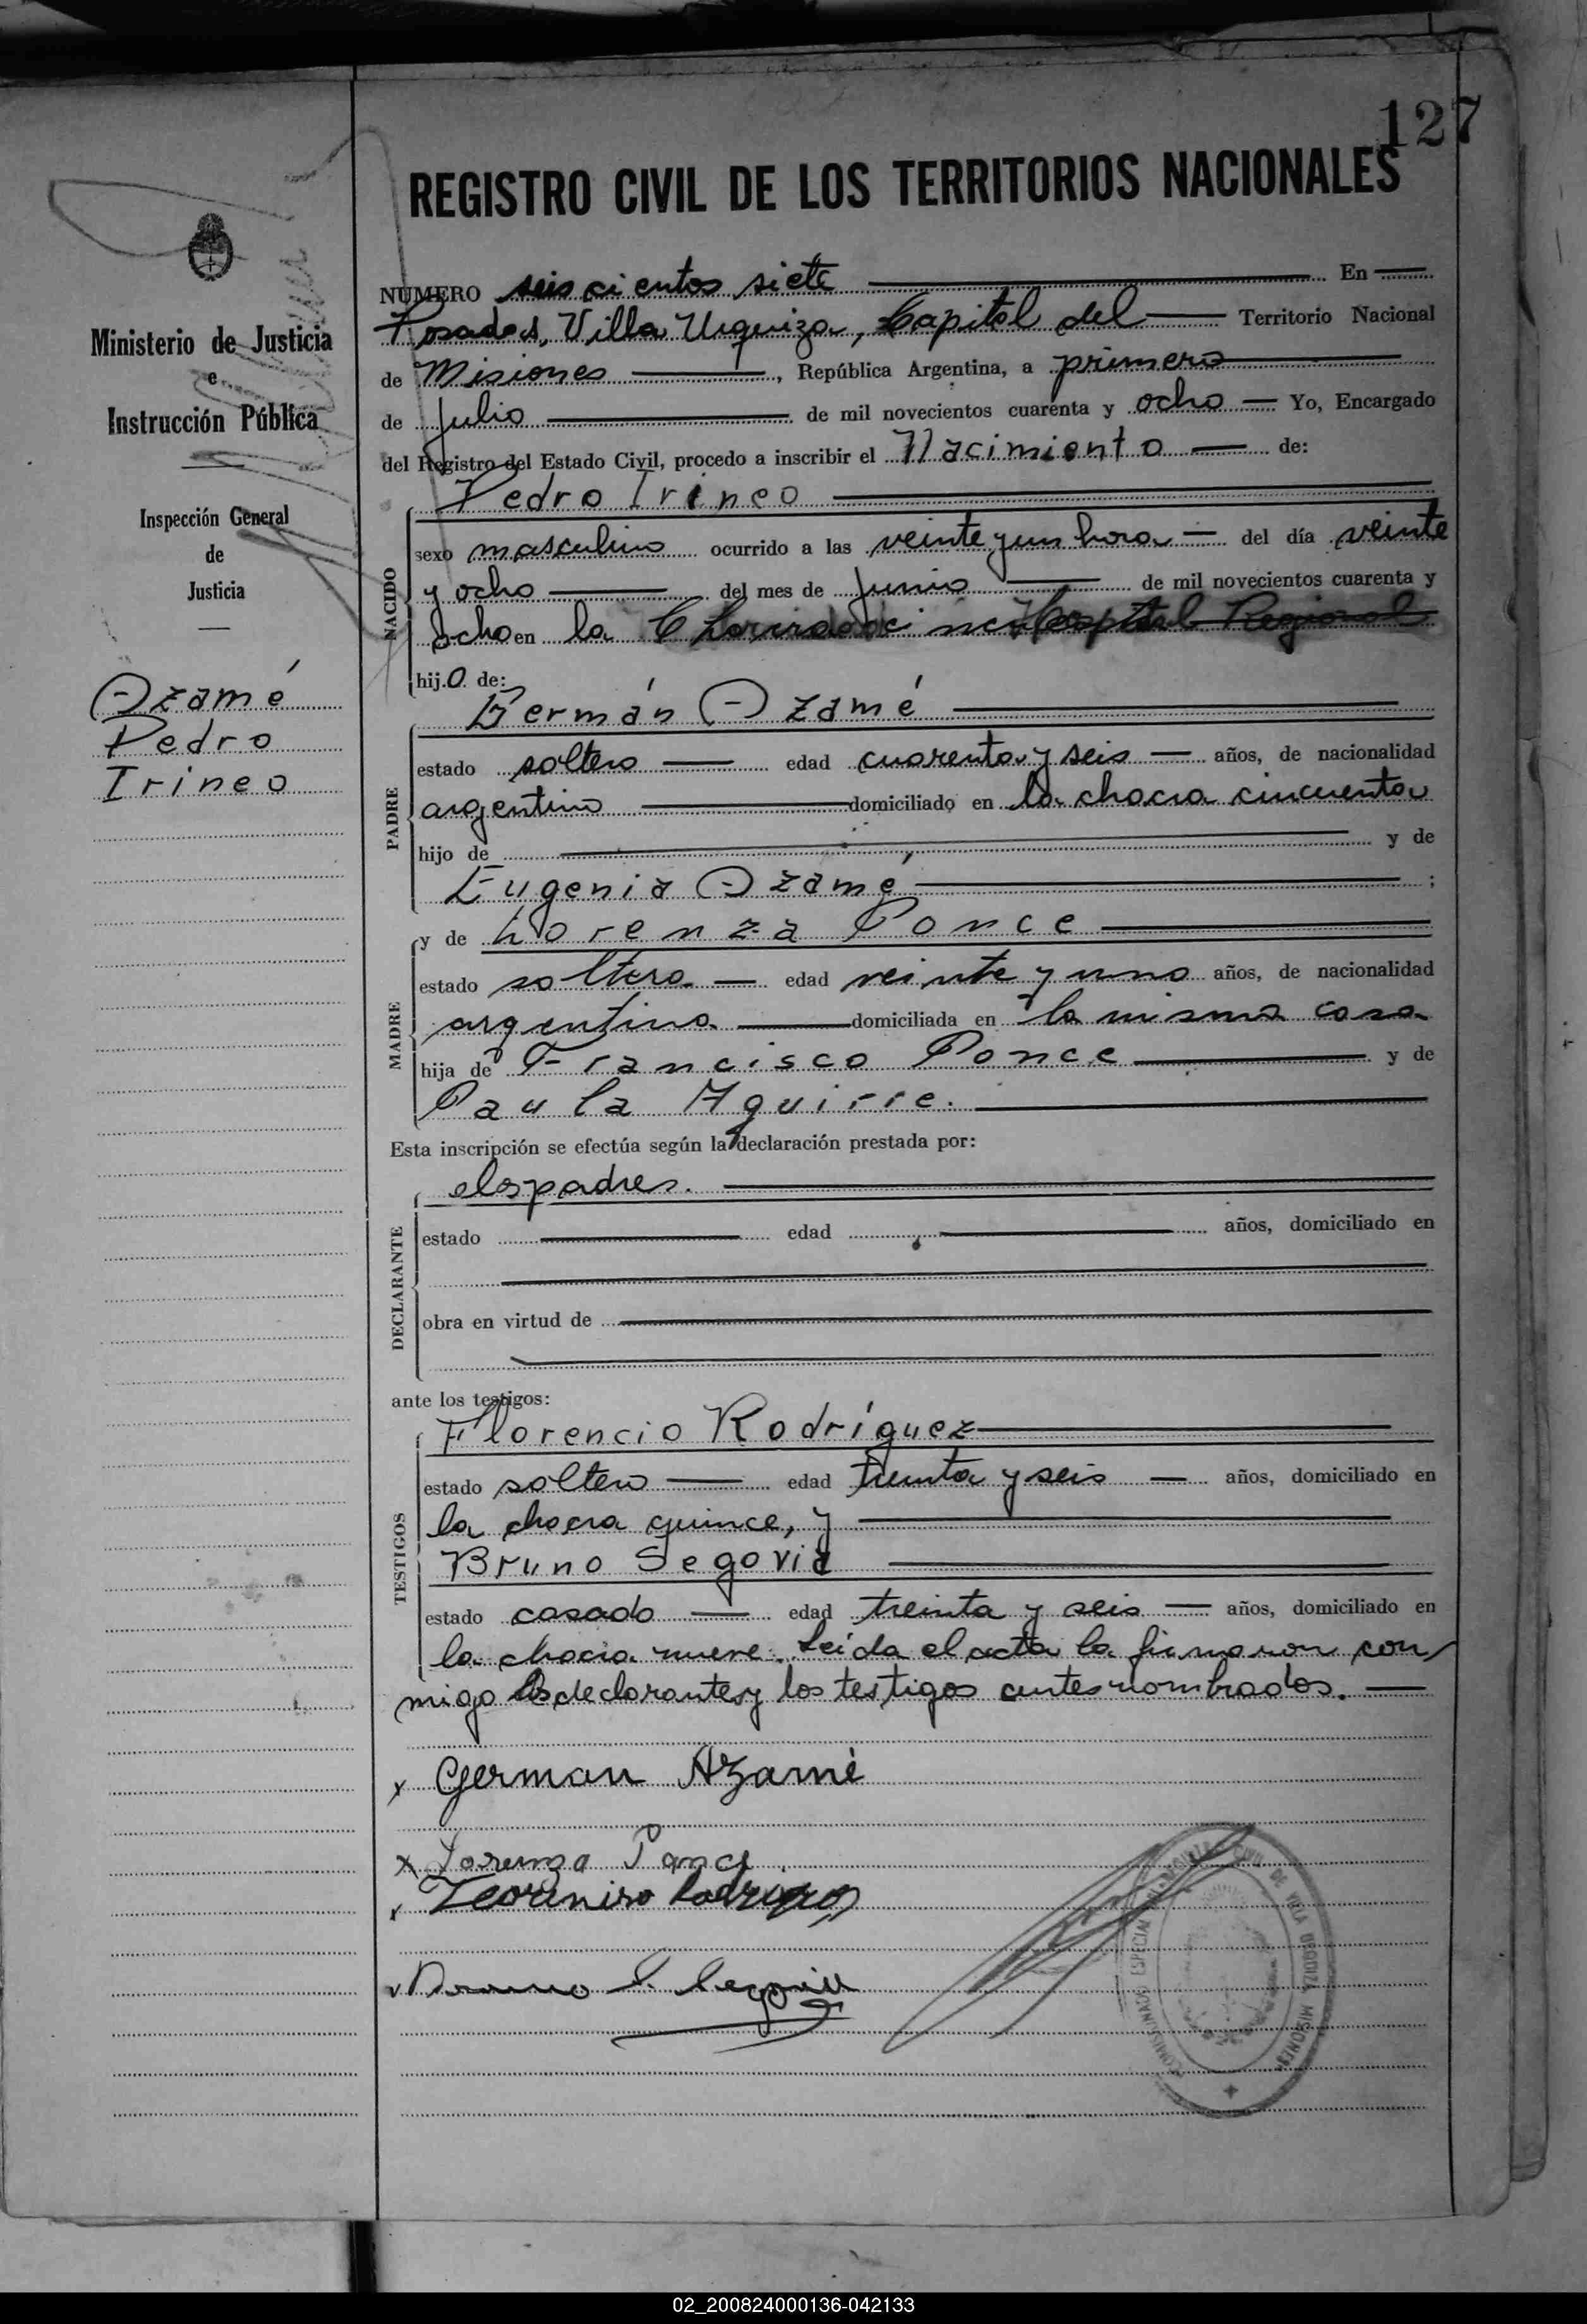 127
REGISTRO CIVIL DE LOS TERRITORIOS NACIONALES
Ministerio de Justicia
e
Instrucción Pública
Inspección General
de
Justicia
Azamé
Pedro
Irineo
NÚMERO seiscientos siete En
Posadas, Villa Urquiza, Capital del Territorio Nacional
de Misiones, República Argentina, a primero
de Julio de mil novecientos cuarenta y ocho Yo, Encargado
del Registro del Estado Civil, procedo a inscribir el Nacimiento de:
NACIDO
Pedro Irineo
sexo masculino ocurrido a las veinte y un hora del día veinte
y ocho del mes de Junio de mil novecientos cuarenta y
ocho en la Hospital Regional
hijo de:
PADRE
Germán Azamé
estado soltero edad cuarenta y seis años, de nacionalidad
argentino domiciliado en la chacra cincuenta
hijo de y de
Eugenia Azamé;
MADRE
y de Lorenza Ponce
estado soltera edad veinte y uno años, de nacionalidad
argentina domiciliada en la misma casa
hija de Francisco Ponce y de
Paula Aguirre.
Esta inscripción se efectúa según la declaración prestada por:
DECLARANTE
los padres.
estado edad años, domiciliado en
obra en virtud de
ante los testigos:
TESTIGOS
Florencio Rodríguez
estado soltero edad treinta y seis años, domiciliado en
la chacra quince, y
Bruno Segovia
estado casado edad treinta y seis años, domiciliado en
la chacra nueve. Leída el acta la firmaron con
migo los declarantes y los testigos antes nombrados.
x German Azamé
x Lorenza Ponce
COMISIONADO ESPECIAL CIVIL DE VILLA URQUIZA MISIONES
02_200824000136-042133